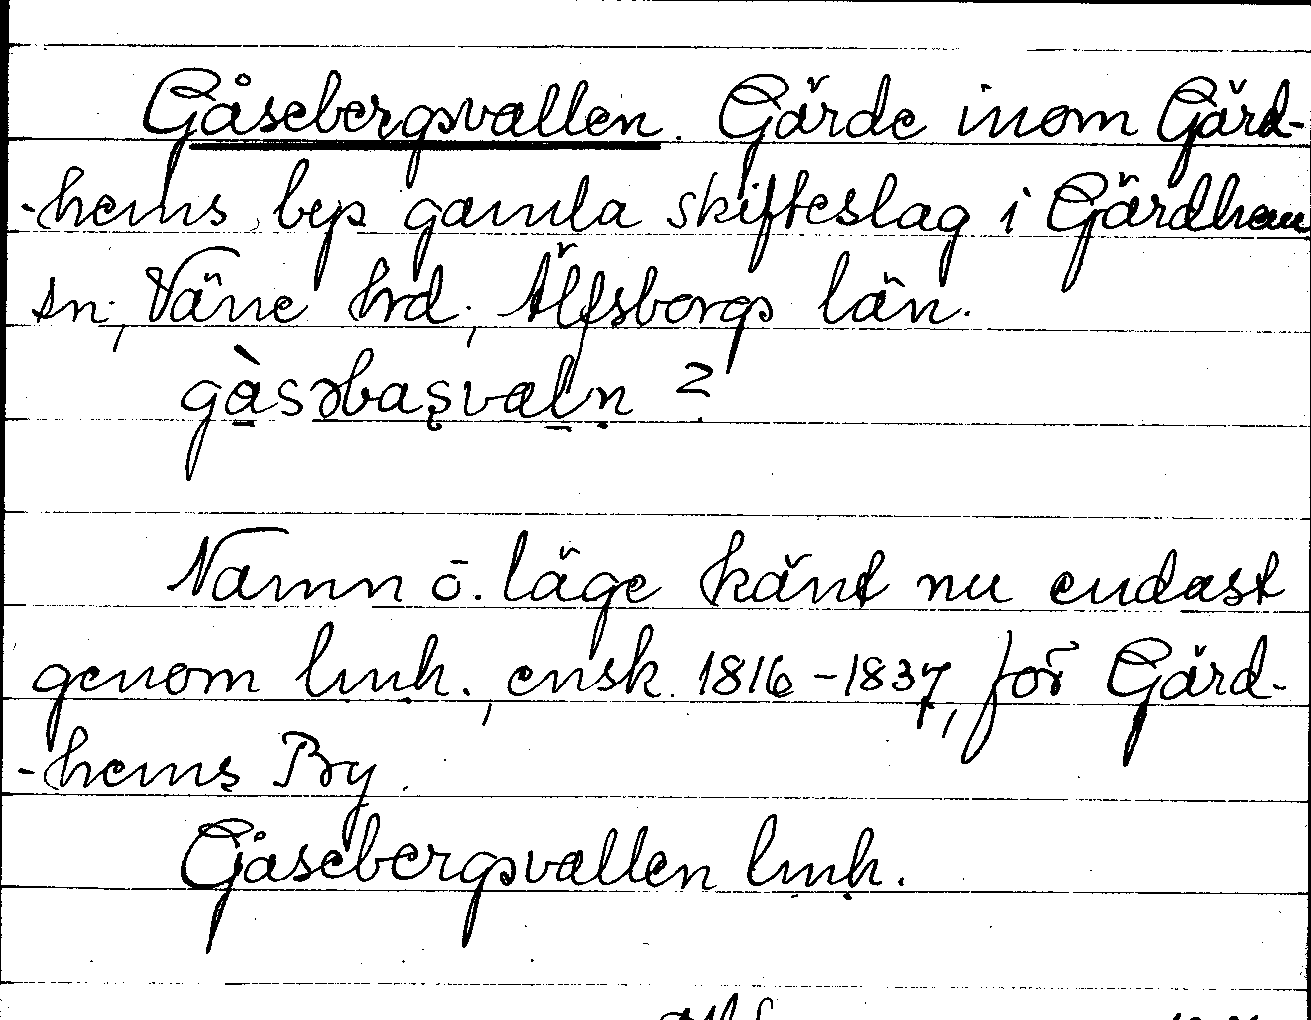 Gåsebergsvallen. Gärde inom Gärd-
-hems bys gamla skifteslag i Gärdhem
sn, Väne hrd, Älfsborgs län.
gàsəbaşvaln ?
Namn o. läge känt nu endast
genom lmh., ensk. 1816-1837, för Gärd-
-hems By.
Gåsebergsvallen lmh.